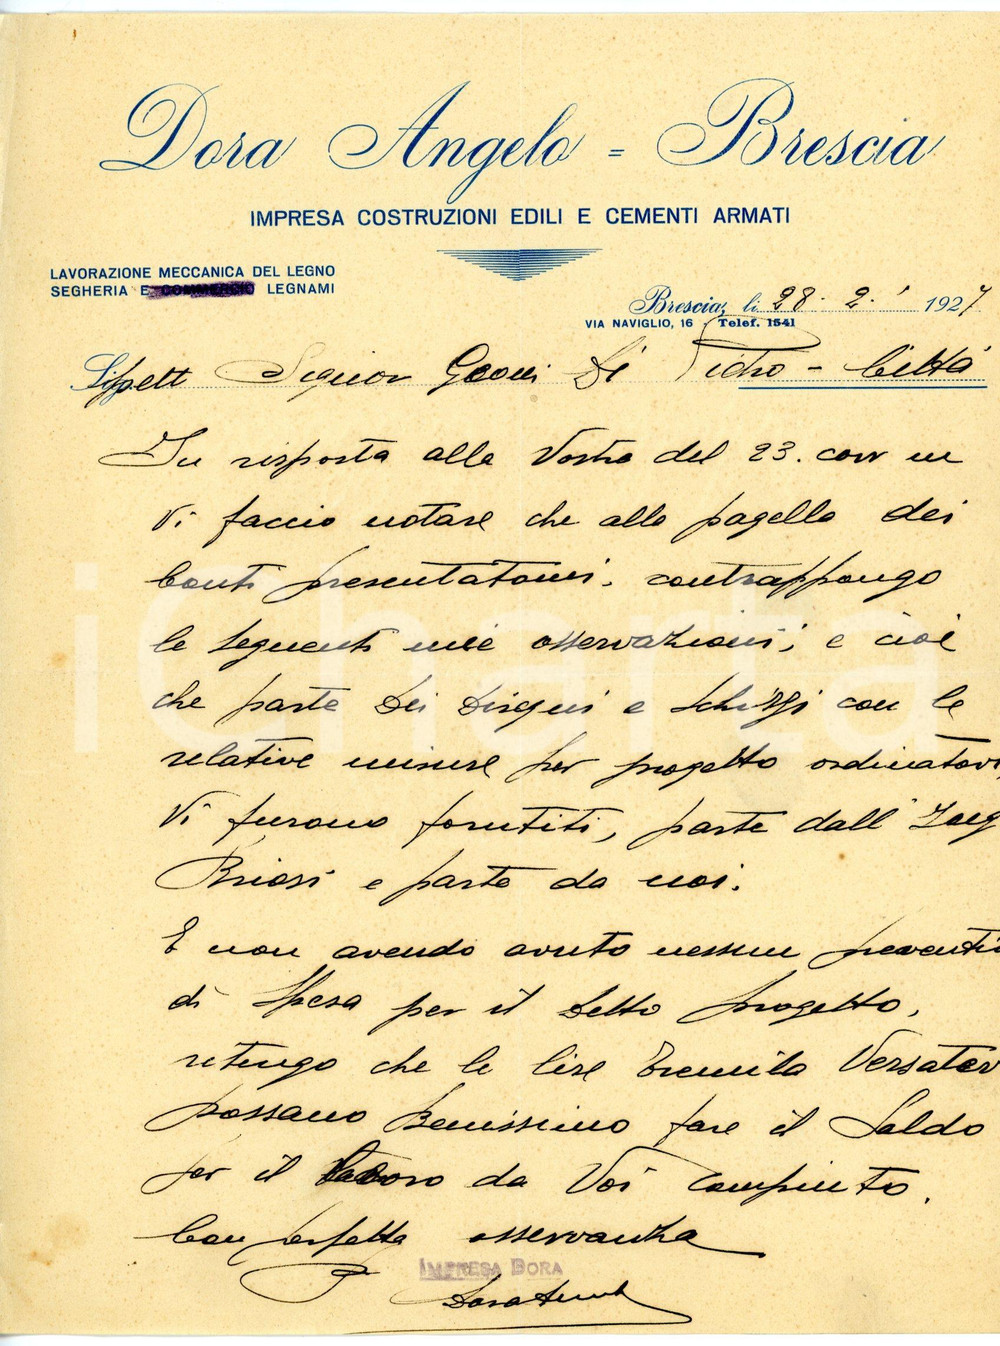 Dora Angelo = Brescia
IMPRESA COSTRUZIONI EDILI E CEMENTI ARMATI
LAVORAZIONE MECCANICA DEL LEGNO
SEGHERIA E COMMERCIO LEGNAMI
Brescia, li 28. 2. 1927
VIA NAVIGLIO, 16 Telef. 1541
Signor Di Città
In risposta alla Vostra del 23. corr
Vi faccio notare che alla pagella dei
Conti presentatomi. contrappongo
le seguenti mie osservazioni; e cioè
che parte dei disegni e schizzi con le
relative misure per progetto ordinatovi
Vi furono forniti, parte dall'
e parte da noi.
E non avendo avuto nessun
di spesa per il detto progetto,
ritengo che le lire tremila Versatevi
possano benissimo fare il Saldo
per il lavoro da Voi compiuto.
Con perfetta osservanza
IMPRESA DORA
iCharta